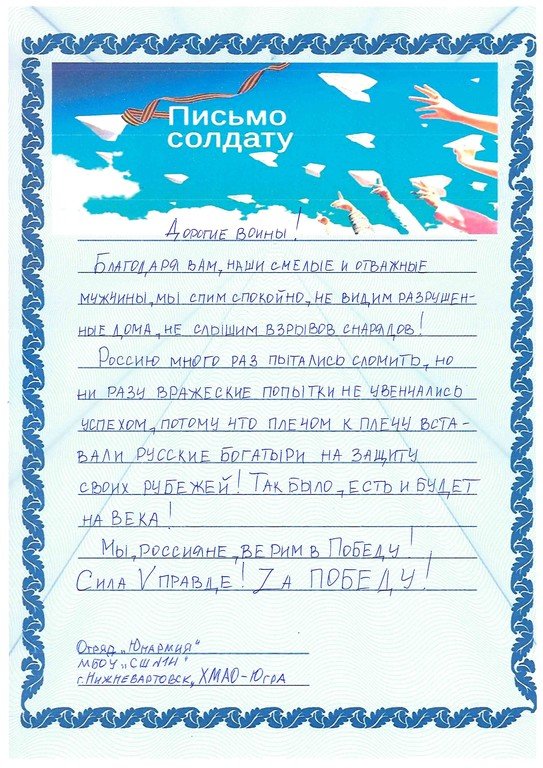 Письмо
солдату
Дорогие воины!
Благодаря вам, наши смелые и отважные
мужчины, мы спим спокойно, не видим разрушен-
ные дома, не слышим взрывов снарядов!
Россию много раз пытались сломить, но
ни разу вражеские попытки не увенчались
успехом, потому что плечом к плечу вста-
вали русские богатыри на защиту
своих рубежей! Так было, есть и будет
на века!
Мы, россияне, верим в Победу!
Сила V правде! Zа ПОБЕДУ!
Отряд „Юнармия"
МБОУ „СШ №14"
г. Нижневартовск, ХМАО-Югра